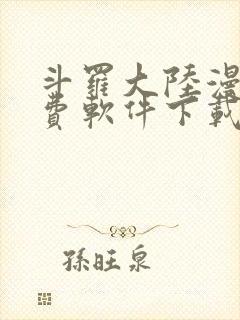 斗羅大陸漫
費軟件下載
孫旺泉